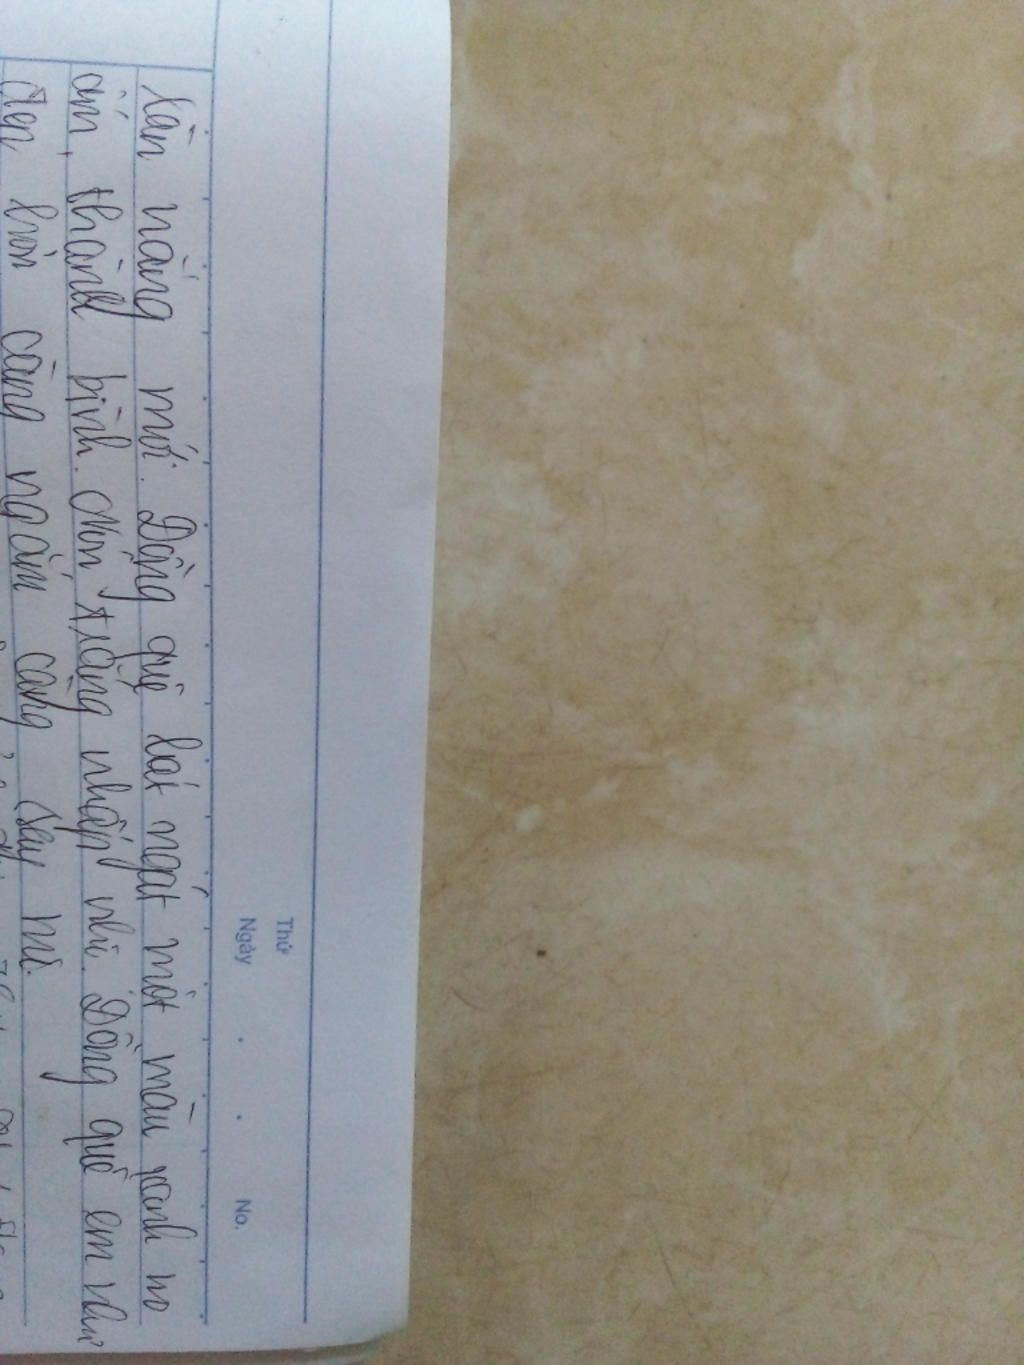 Thứ
Ngày . . No.
làn nắng mới. Đồng quê bát ngát một màu xanh no
ấm, thanh bình. Món trắng nhấp nhô. Đồng quê em như
đẹp hơn càng ngắm càng say mê.